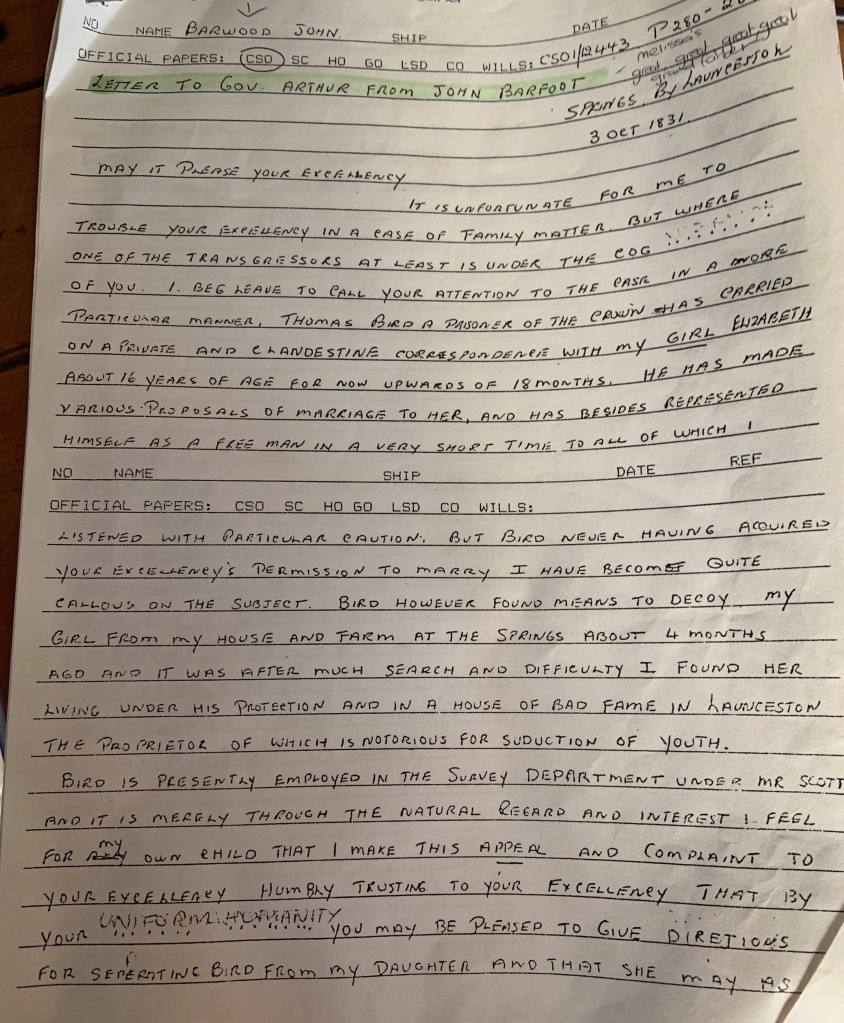 NO NAME BARWOOD JOHN. SHIP DATE P280-
OFFICIAL PAPERS: CSO SC HO GO LSD CO WILLS: CSO1/12443
melissa's
great, great, great, great
grand father
LETTER TO GOV. ARTHUR FROM JOHN BARFOOT
SPRINGS. By LAUNCESTON
3 OCT 1831.
MAY IT PLEASE YOUR EXCELLENCY
IT IS UNFORTUNATE FOR ME TO
TROUBLE YOUR EXCELLENCY IN A CASE OF FAMILY MATTER. BUT WHERE
ONE OF THE TRANSGRESSORS AT LEAST IS UNDER THE COG
OF YOU. I. BEG LEAVE TO CALL YOUR ATTENTION TO THE CASE IN A MORE
PARTICULAR MANNER, THOMAS BIRD A PRISONER OF THE CROWN HAS CARRIED
ON A PRIVATE AND CLANDESTINE CORRESPONDENCE WITH MY GIRL ELIZABETH
ABOUT 16 YEARS OF AGE FOR NOW UPWARDS OF 18 MONTHS. HE HAS MADE
VARIOUS PROPOSALS OF MARRIAGE TO HER, AND HAS BESIDES REPRESENTED
HIMSELF AS A FREE MAN IN A VERY SHORT TIME TO ALL OF WHICH I
NO NAME SHIP DATE REF
OFFICIAL PAPERS: CSO SC HO GO LSD CO WILLS:
LISTENED WITH PARTICULAR CAUTION. BUT BIRD NEVER HAVING ACQUIRED
YOUR EXCELLENCY'S PERMISSION TO MARRY I HAVE BECOME QUITE
CALLOUS ON THE SUBJECT. BIRD HOWEVER FOUND MEANS TO DECOY MY
GIRL FROM MY HOUSE AND FARM AT THE SPRINGS ABOUT 4 MONTHS
AGO AND IT WAS AFTER MUCH SEARCH AND DIFFICULTY I FOUND HER
LIVING UNDER HIS PROTECTION AND IN A HOUSE OF BAD FAME IN LAUNCESTON
THE PROPRIETOR OF WHICH IS NOTORIOUS FOR SUDUCTION OF YOUTH.
BIRD IS PRESENTLY EMPLOYED IN THE SURVEY DEPARTMENT UNDER MR SCOTT
AND IT IS MERELY THROUGH THE NATURAL REGARD AND INTEREST I FEEL
FOR MY OWN CHILD THAT I MAKE THIS APPEAL AND COMPLAINT TO
YOUR EXCELLENCY HUMBLY TRUSTING TO YOUR EXCELLENCY THAT BY
YOUR UNIFORM HUMANITY YOU MAY BE PLEASED TO GIVE DIRETIONS
FOR SEPERATING BIRD FROM MY DAUGHTER AND THAT SHE MAY AS